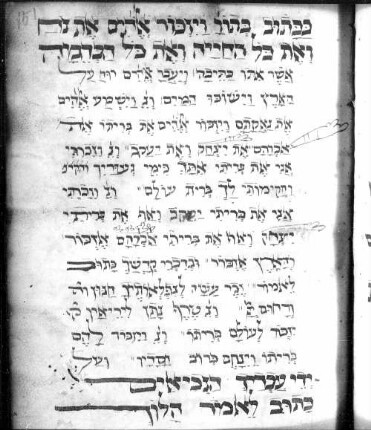 ככתוב ויזכור אלהים את נח
ואת כל החייה ואת כל הבהמה
אשר אתו בתיבה ויעבר אלהים רוח על
הארץ וישוכו המים ונ׳ וישמע אלהים
את נאקתם ויזכור אלהים את בריתו את
אברהם את יצחק ואת יעקב ונ׳ וזכרתי
אני את בריתי אתך בימי נעוריך
והקימותי לך ברית עולם ונ׳ וזכרתי
אני את בריתי יעקב ואף את בריתי
יצחק ואף את בריתי אברהם אזכור
והארץ אזכור ובדברי קדשך כתוב
לאמור זכר עשה חנון
ורחום ונ׳ טרף נתן ליריאיו
יזכר לעולם בריתו ונ׳ ויזכור להם
בריתו וינחם ברוב חסדיו ועל
ידי עבדיך הנביאים
כתוב לאמור הלוך